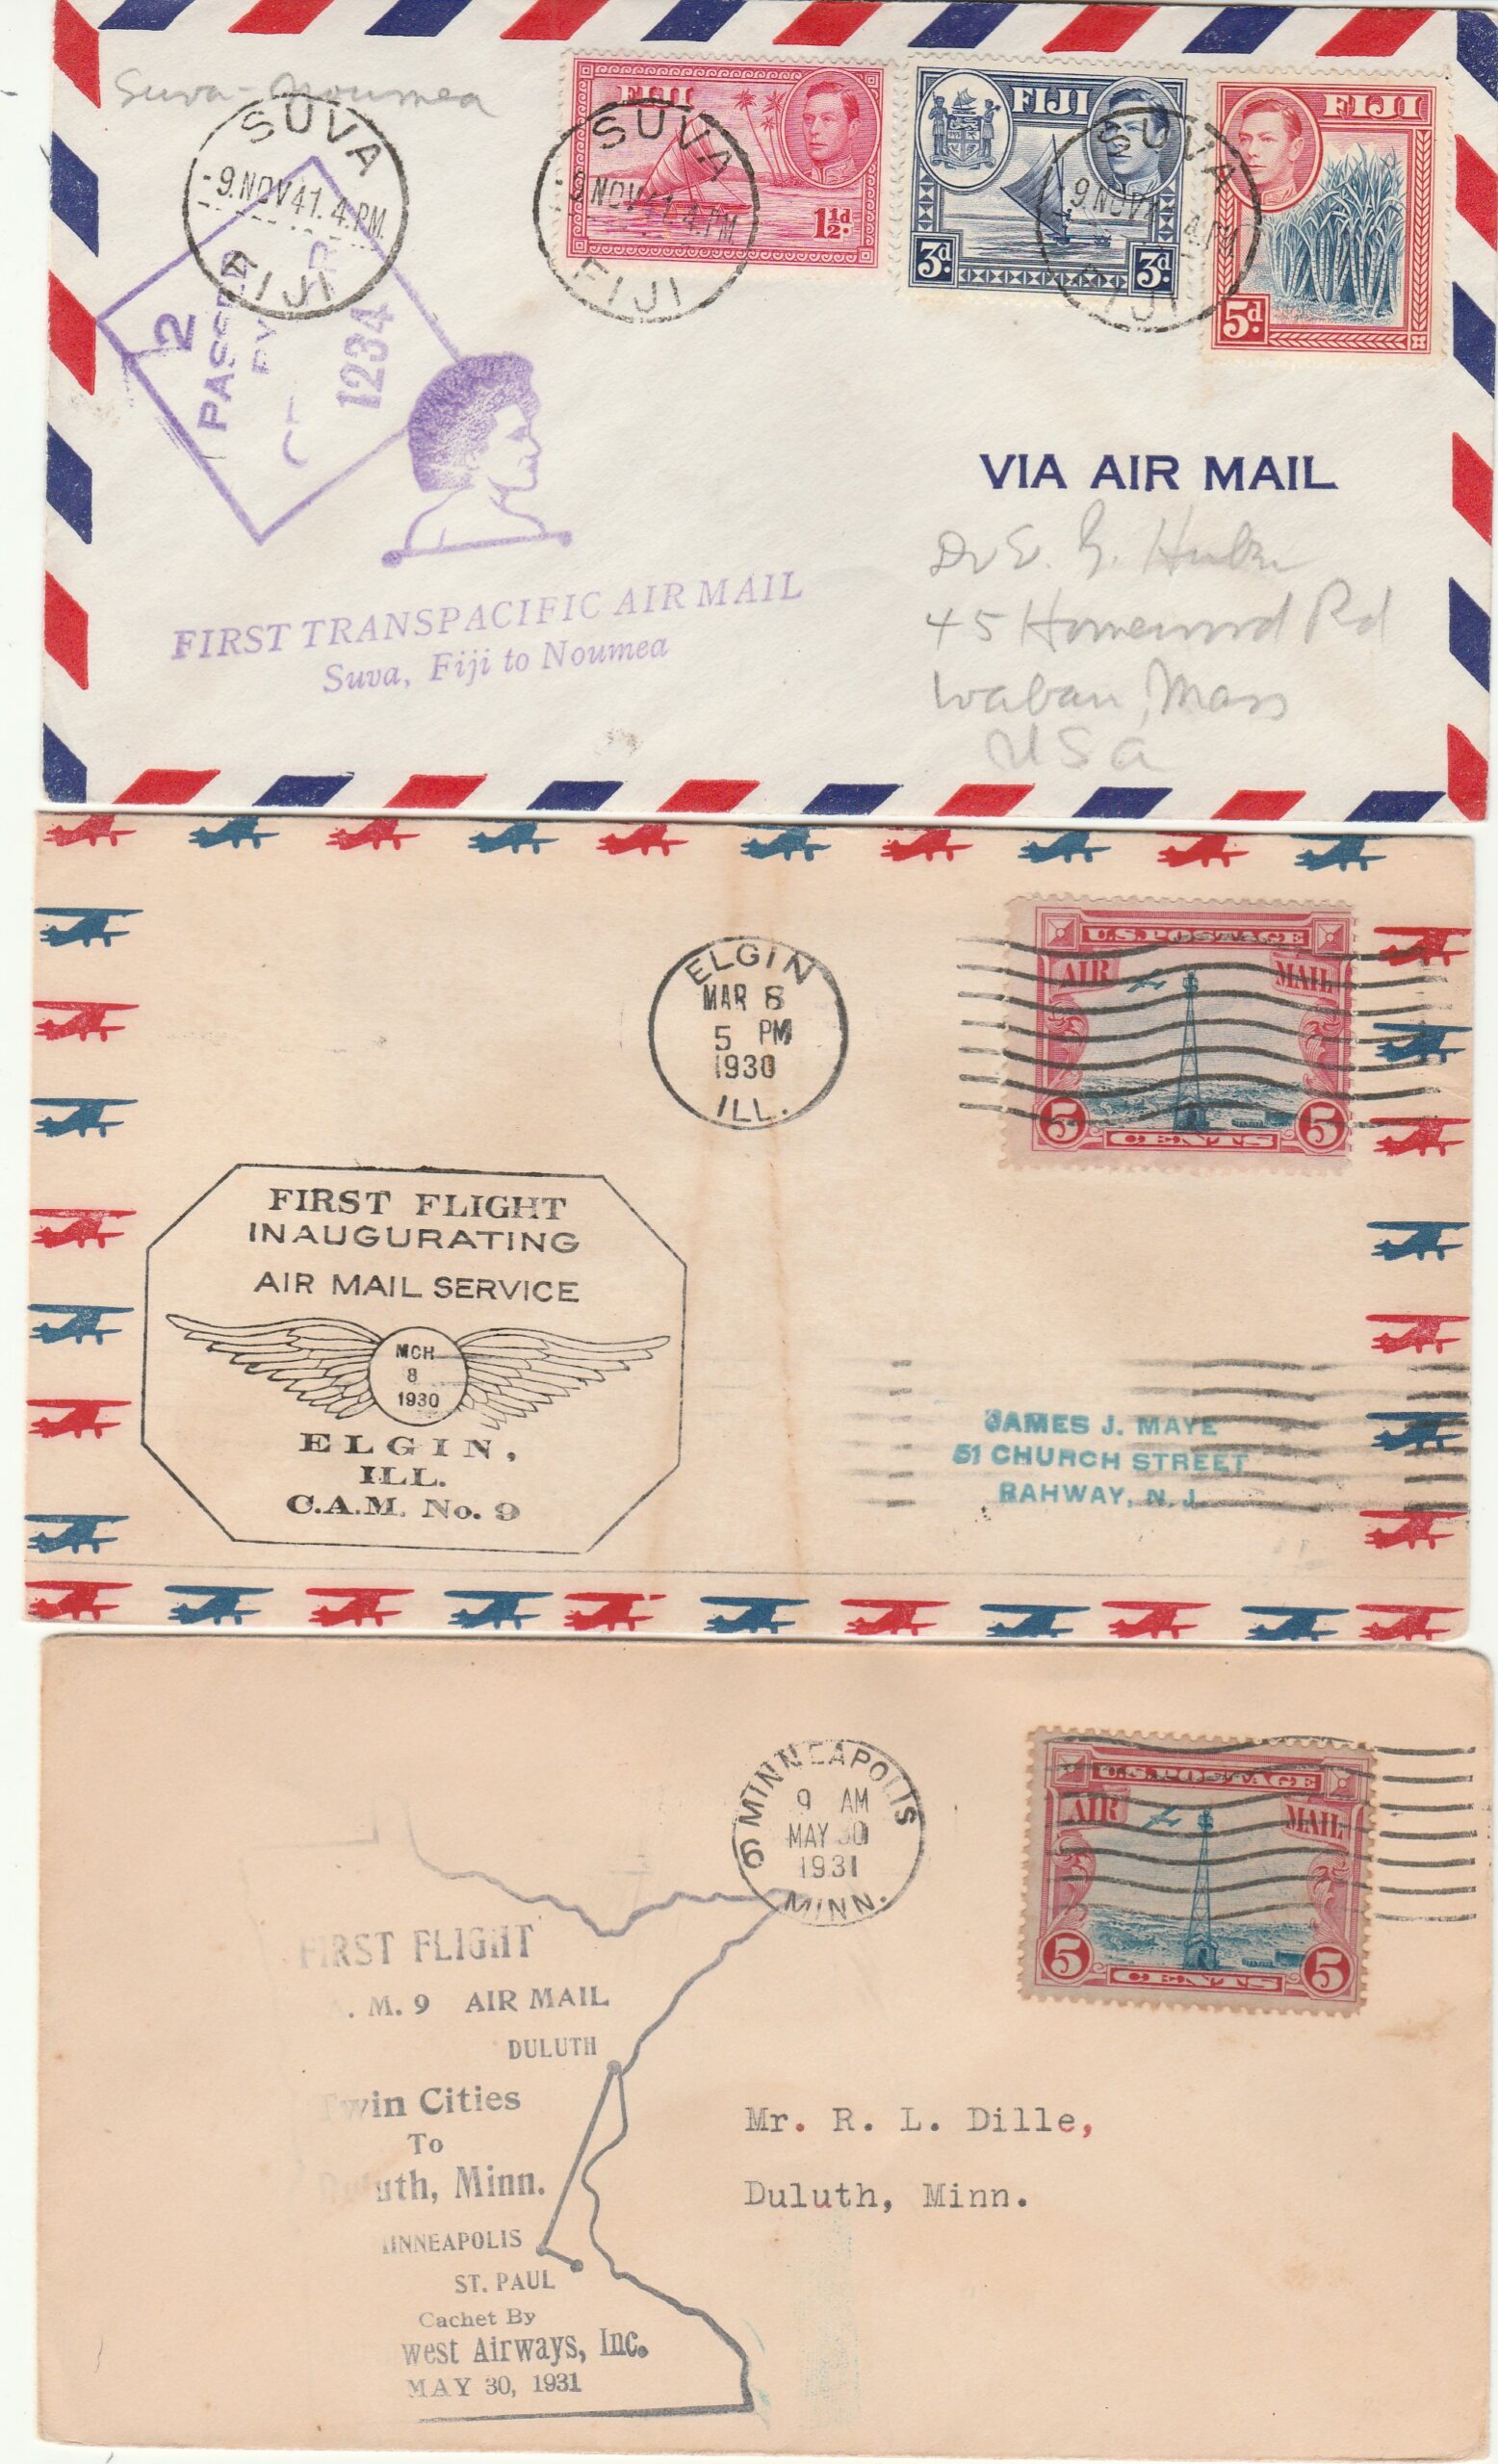 Suva - Noumea
SUVA
-9.NOV41.4.PM.
FIJI
2
PASSED
BY
1234
FIJI
1½d.
SUVA
9.NOV41.4.PM.
FIJI
FIJI
3d. 3d.
SUVA
-9.NOV
FIJI
FIJI
5d.
FIRST TRANSPACIFIC AIR MAIL
Suva, Fiji to Noumea
VIA AIR MAIL
Dr E. G. Huber
45 Homewood Rd
Waban, Mass
USA
ELGIN
MAR 8
5 PM
1930
ILL.
U.S. POSTAGE
AIR MAIL
5 CENTS 5
FIRST FLIGHT
INAUGURATING
AIR MAIL SERVICE
MCH
8
1930
ELGIN,
ILL.
C.A.M. No. 9
JAMES J. MAYE
51 CHURCH STREET
RAHWAY, N. J.
MINNEAPOLIS
9 AM
MAY 30
1931
MINN.
U.S. POSTAGE
AIR MAIL
5 CENTS 5
FIRST FLIGHT
. M. 9 AIR MAIL
DULUTH
Twin Cities
To
Duluth, Minn.
MINNEAPOLIS
ST. PAUL
Cachet By
west Airways, Inc.
MAY 30, 1931
Mr. R. L. Dille,
Duluth, Minn.